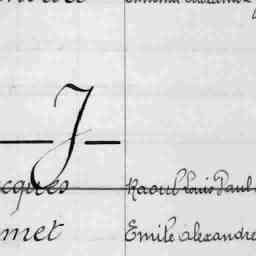 J
cques Raoul Louis Paul
met Emile Alexandre